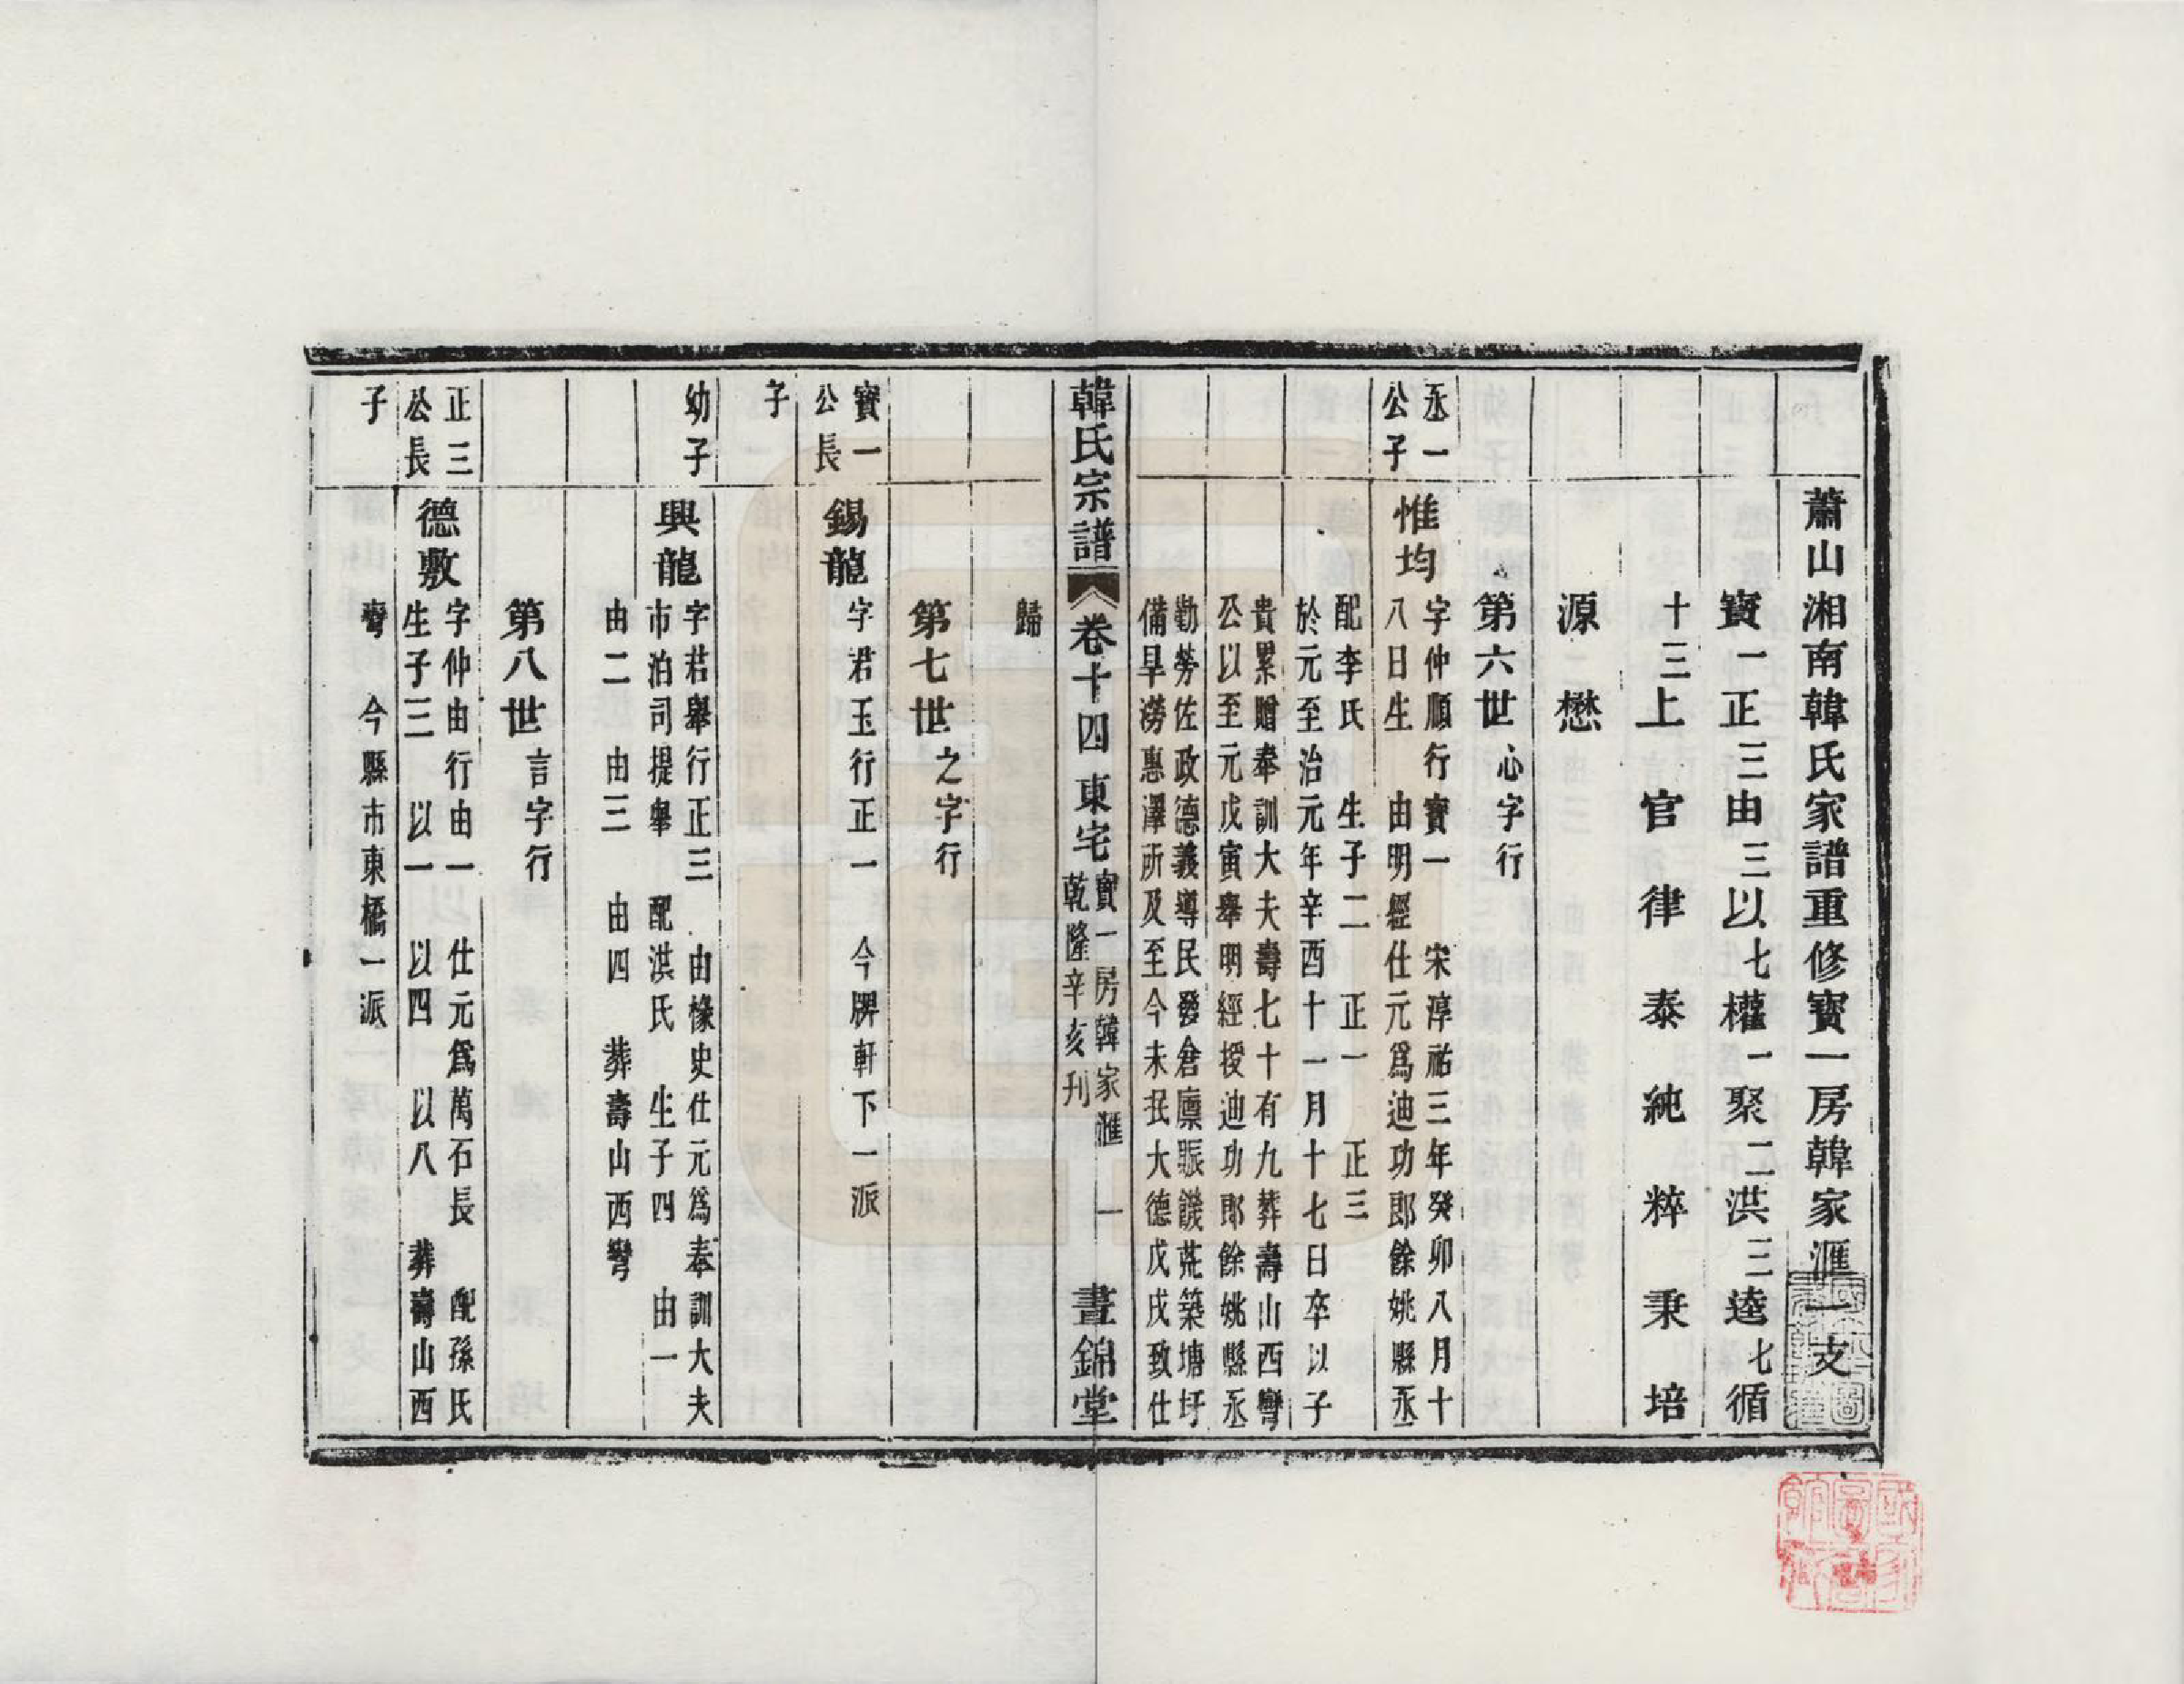 蕭山湘南韓氏家譜重修寶一房韓家滙一支
寶一正三由三以七權一聚二洪三逵七循
十三上官律泰純粹秉培
源懋
第六世心字行
丞一
公子
惟均
字仲順行寶一　宋淳祐三年癸卯八月十
八日生　由明經仕元爲迪功郎餘姚縣丞
配李氏　生子二　正一　正三
於元至治元年辛酉十一月十七日卒以子
貴累贈奉訓大夫壽七十有九葬壽山西彎
公以至元戊寅舉明經授迪功郎餘姚縣丞
勸勞佐政德義導民發倉廩賑饑荒築塘圩
備旱澇惠澤所及至今未泯大德戊戌致仕
韓氏宗譜　卷十四　東宅　寶一房韓家滙　乾隆辛亥刊　一　晝錦堂
歸
第七世之字行
寶一
公長
子
錫龍
字君玉行正一　今牌軒下一派
幼子
興龍
字君舉行正三　由掾史仕元爲奉訓大夫
市泊司提舉　配洪氏　生子四　由一
由二　由三　由四　葬壽山西彎
第八世言字行
正三
公長
子
德敷
字仲由行由一　仕元爲萬石長　配孫氏
生子三　以一　以四　以八　葬壽山西
彎　今縣市東橋一派